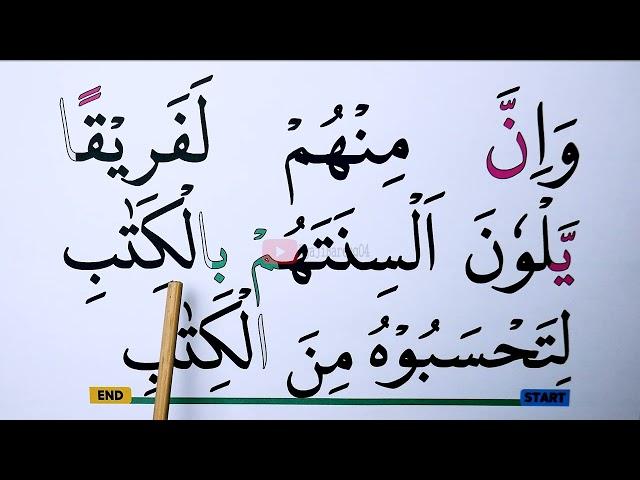 وَاِنَّ مِنْهُمْ لَفَرِيْقًا
يَّلْوٗنَ اَلْسِنَتَهُمْ بِالْكِتٰبِ
لِتَحْسَبُوْهُ مِنَ الْكِتٰبِ
END START